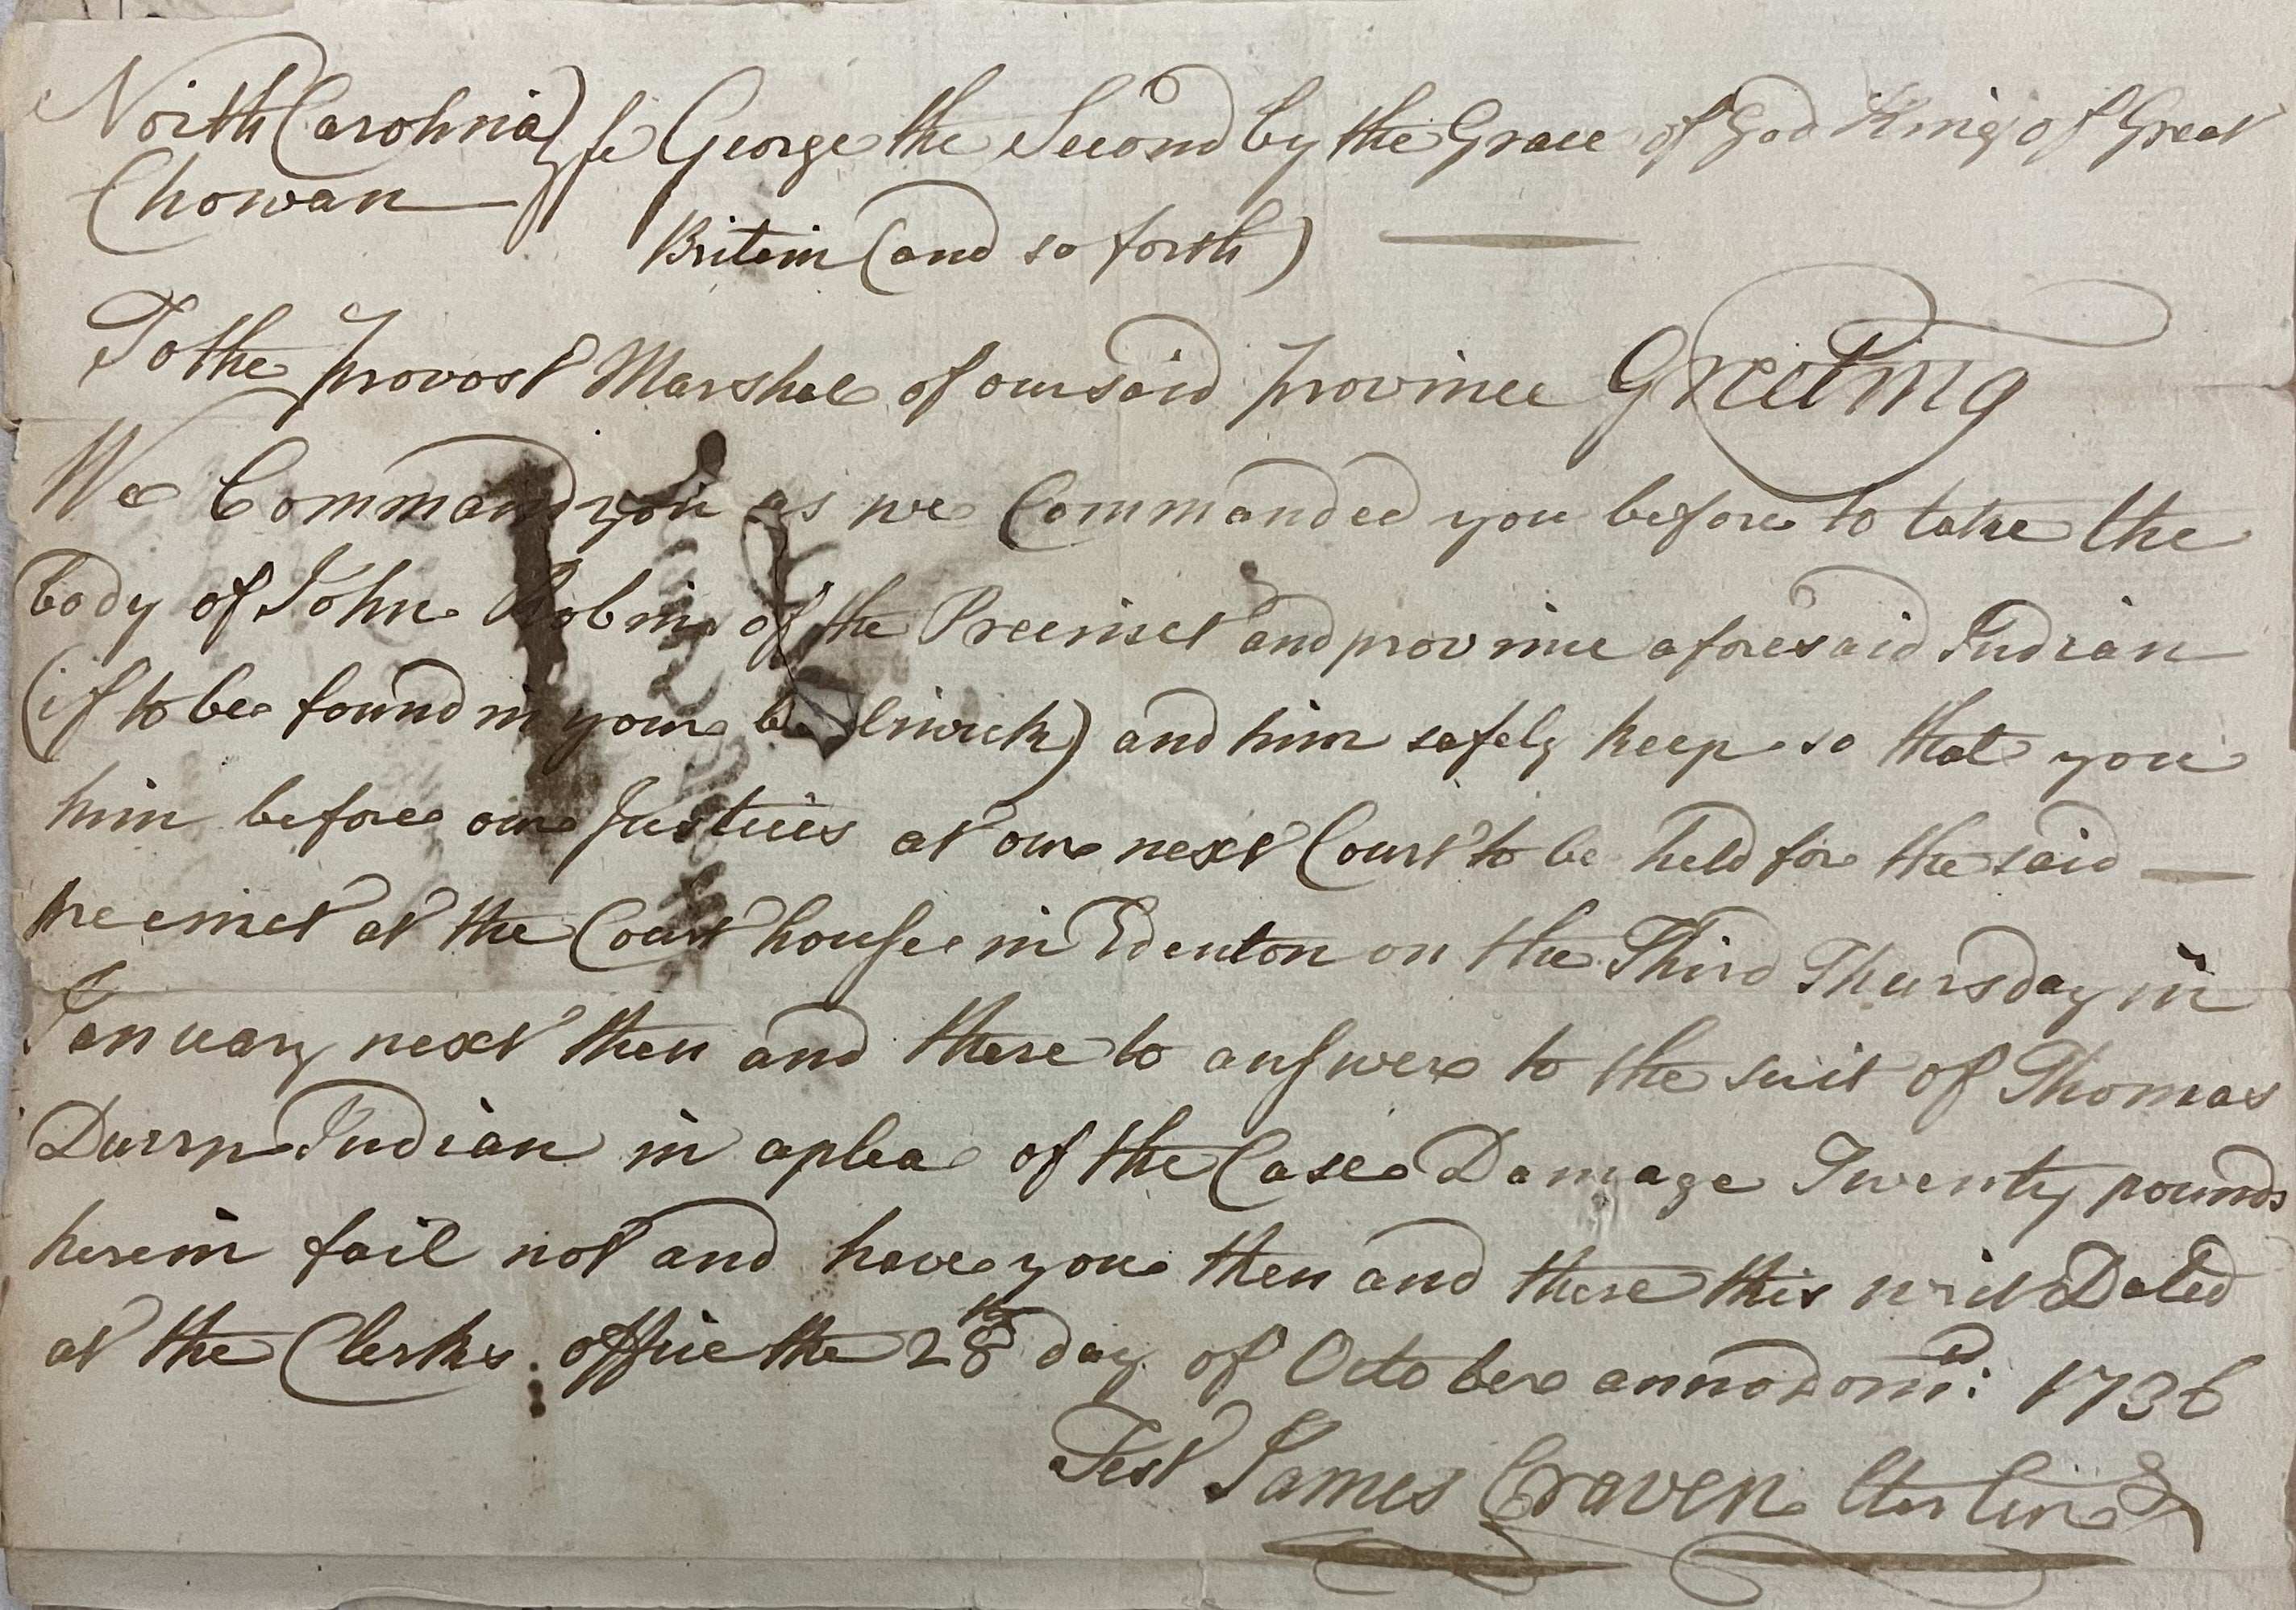 North Carolina } ss George the Second by the Grace of God King of Great
Chowan
Britain (and so forth)
To the provost Marshal of our said province Greeting
We Command you as we Commanded you before to take the
body of John Robins of the Precinct and province aforesaid Indian
(if to be found in your bailiwick) and him safely keep so that you
him before our Justices at our next Court to be held for the said
precinct at the Court house in Edenton on the Third Thursday in
January next then and there to answer to the suit of Thomas
Durrn Indian in a plea of the Case Damage Twenty pounds
herein fail not and have you then and there this writ Dated
at the Clerks office the 28th day of October annodomi: 1736
Test James Craven Cler Cur